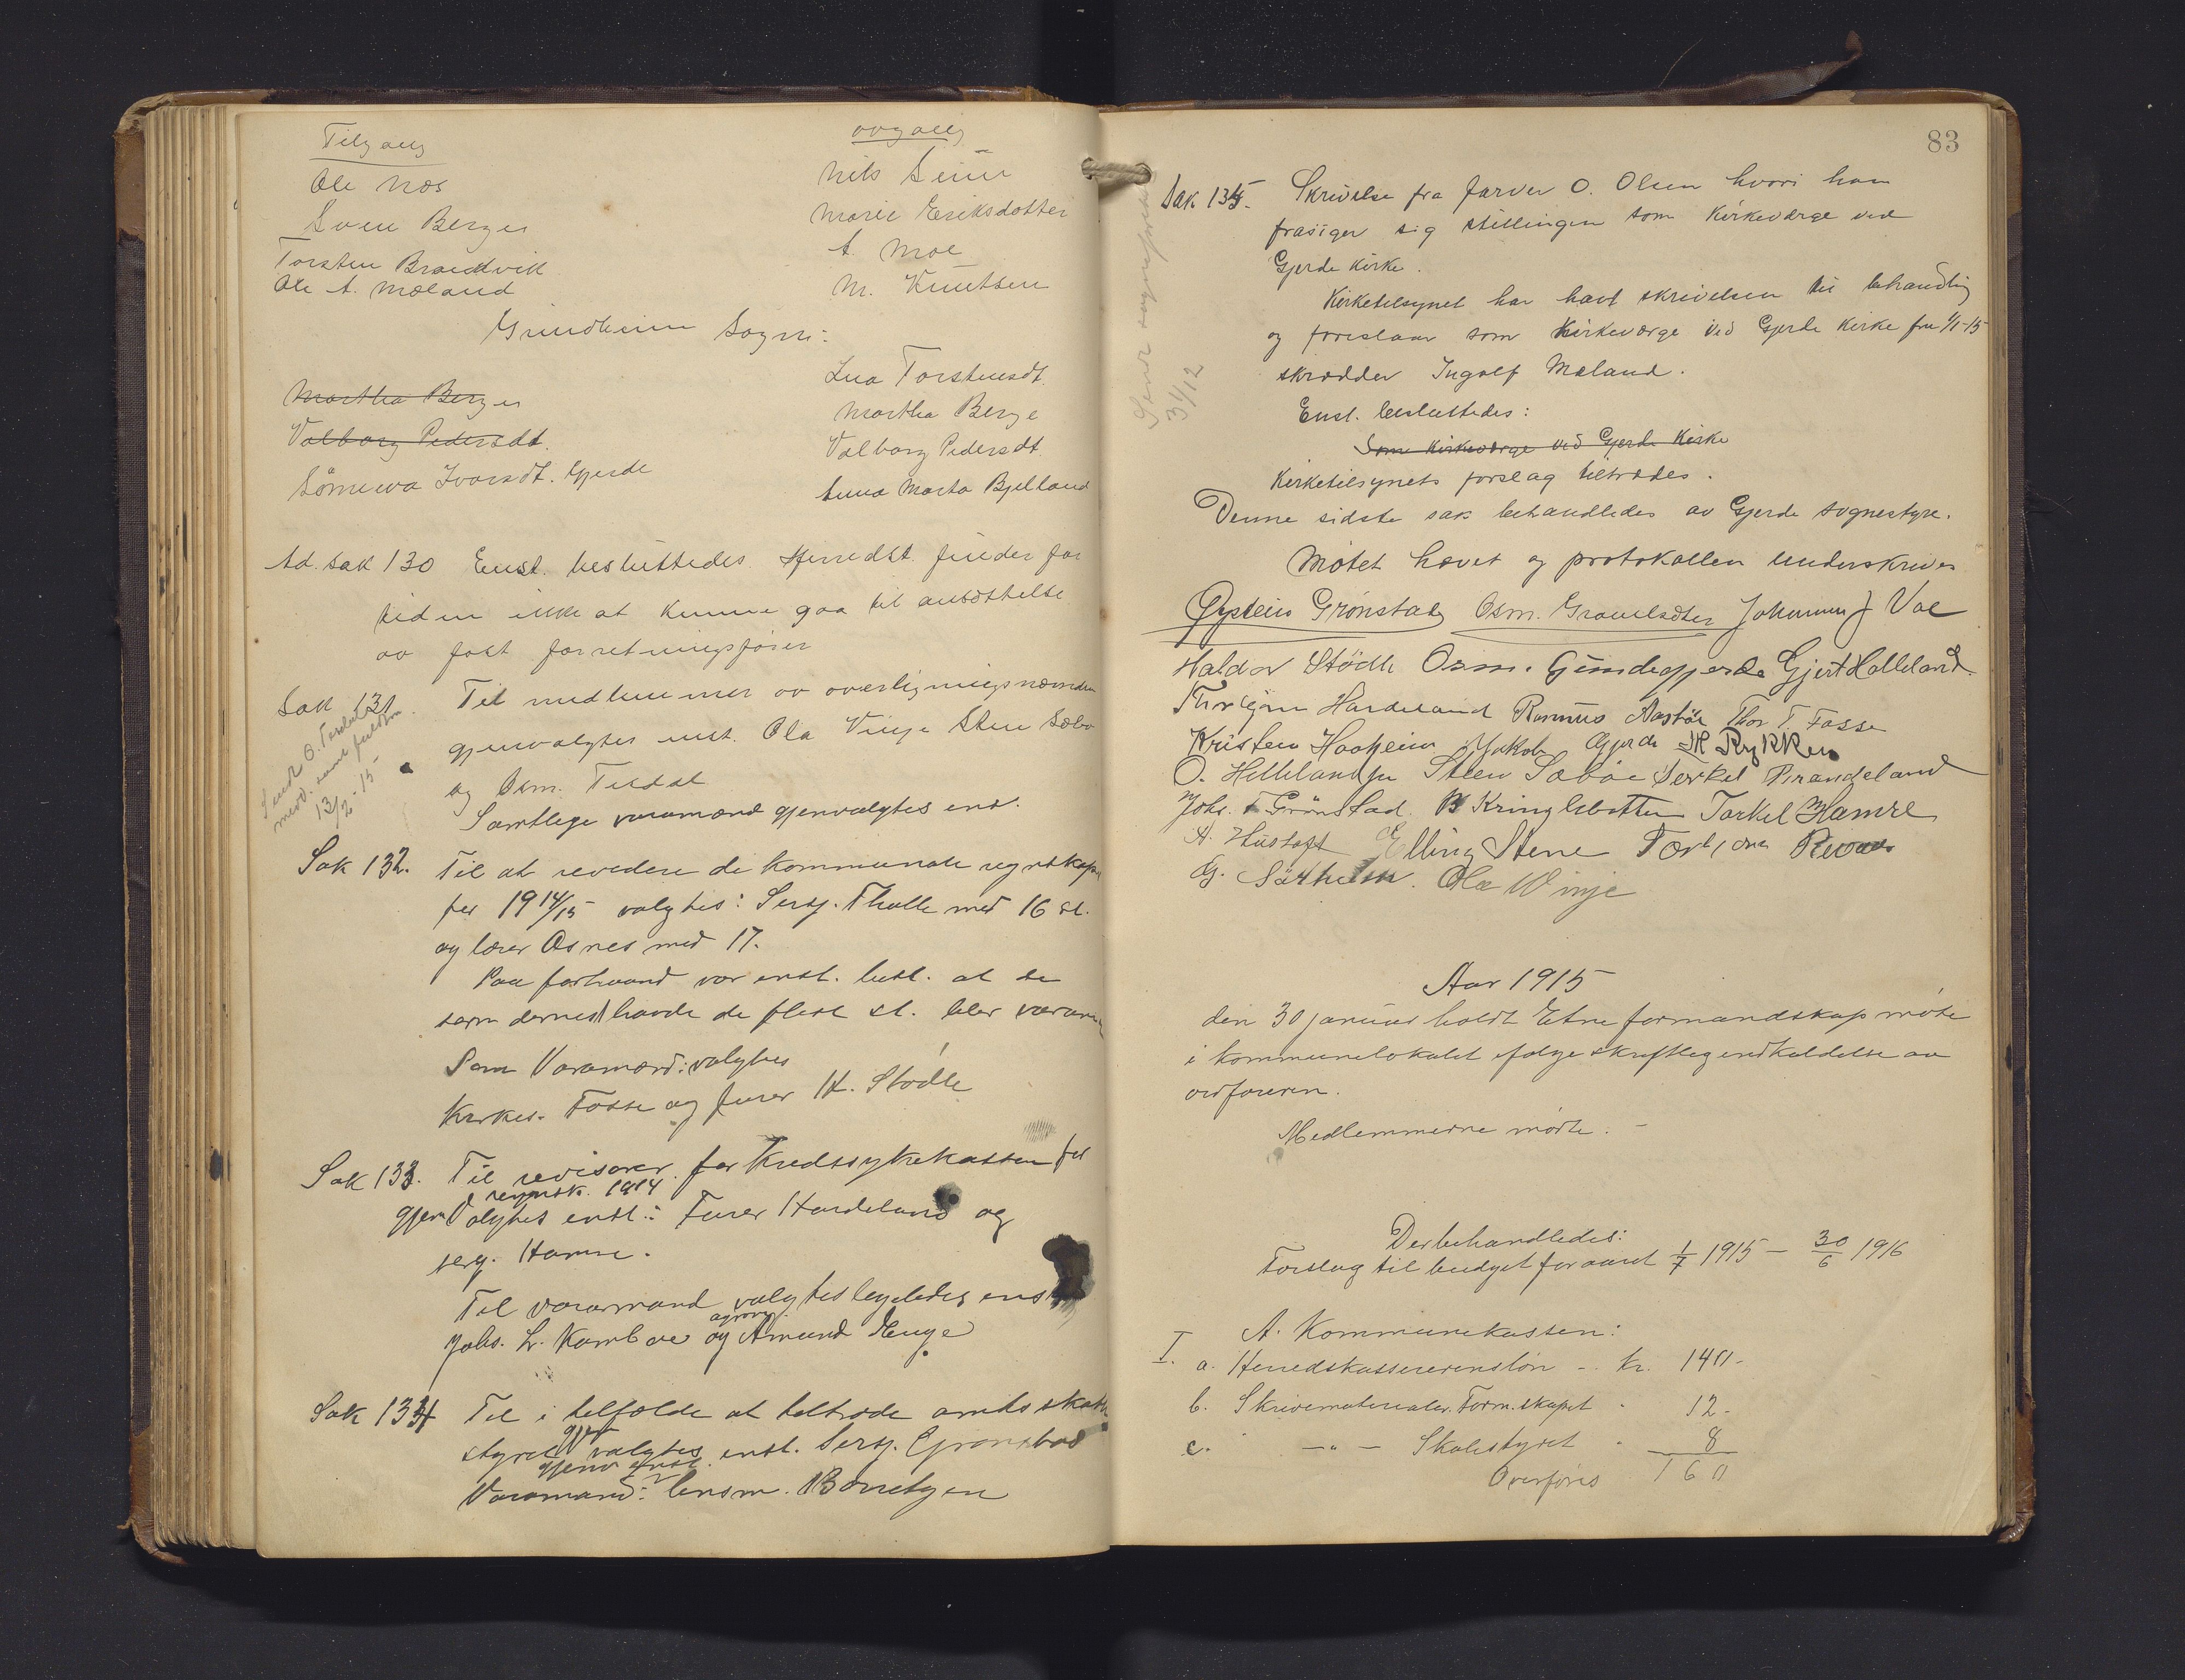 Tilgang
Ole Næs
Sven Berge
Torsten Brandvik
Ole A. Mæland
avgang
Nils Seim
Marie Eriksdotter
A. Moe
M. Knutsen
Grindheim Sogn:
Martha Berge
Valborg Pedersdt.
Sönneva Ivarsdt. Gjerde
Lua Torstensdt.
Martha Berge
Valborg Pedersdt.
Anna Marta Bjelland
Ad. sak 130 Enst. besluttedes Herredst. finder for
tiden ikke at kunne gaa til ansættelse
av fast forretningsfører
Sak 131. Til medlemmer av overligningsnævnden
gjenvalgtes enst. Ola Vinje Sten Sæbø
og Osm. Tesdal
Samtlige varamænd gjenvalgtes enst.
13/2-15
Sak 132. Til at revidere de kommunale regnskaper
for 1914/15 valgtes: Sersj. Tholle med 16 st.
og lærer Osnes med 17.
Paa forhaand var enst. besl. at de
som dernest havde de flest st. blev varamænd
Som Varamænd: valgtes
Kirkes. Fosse og furer H. Stødle
Sak 133. Til revisorer for Kredssykekassen for
regnsk. 1914
gjenvalgtes enst.: Furer Hardeland og
serg. Hamre.
Til varamænd valgtes ligeledes enst.
Johs. L. Kambe og agron. Amund Neuge
Sak 134 Til i tilfælde at tiltræde amtsskatte
styret gjenvalgtes enst. Sersj. Grønstad
gjenv. enst.
Varamand: lensm. Børretzen
83
Sak 135. Skrivelse fra farver O. Olsen hvori han
frasiger sig stillingen som Kirkeværge ved
Gjerde Kirke.
Kirketilsynet har havt skrivelsen til behandling
og foreslaar som Kirkeværge ved Gjerde Kirke fra 1/1-15
skrædder Ingolf Mæland.
Enst. besluttedes:
Som Kirkeværge ved Gjerde Kirke
Kirketilsynets forslag tiltrædes.
Denne sidste sak behandledes av Gjerde sognestyre.
31/12
Møtet hævet og protokollen underskrives
Øystein Grønstad Osm. Gravelsæter Johannes J Vae
Haldor Stödle Osm. Grindegjerde Gjert Halleland.
Torbjørn Hardeland Rasmus Aastöl Thor T. Fosse
Kristen Haaheim Jakob Gjerde M Rykken
O. Helleland jr Steen Sæbøe Terkel Brandeland
Johs. T Grönstad. B Kringlebotten Torkel Hamre
A. Hustoft Elling Stene
G. Sörheim. Ola Winje
Aar 1915
den 30 januar holdt Etne formandskap møte
i kommunelokalet ifølge skriftleg indkaldelse av
ordføreren.
Medlemmerne møtte. -
Der behandledes:
Forslag til budget for aaret 1/7 1915 – 30/6 1916
A. Kommunekassen:
I. a. Herredskassererens løn - kr. 140.-
b. Skrivematerialer. Form.skapet " 12.-
c. " -"- Skolestyret " 8
Overføres 160